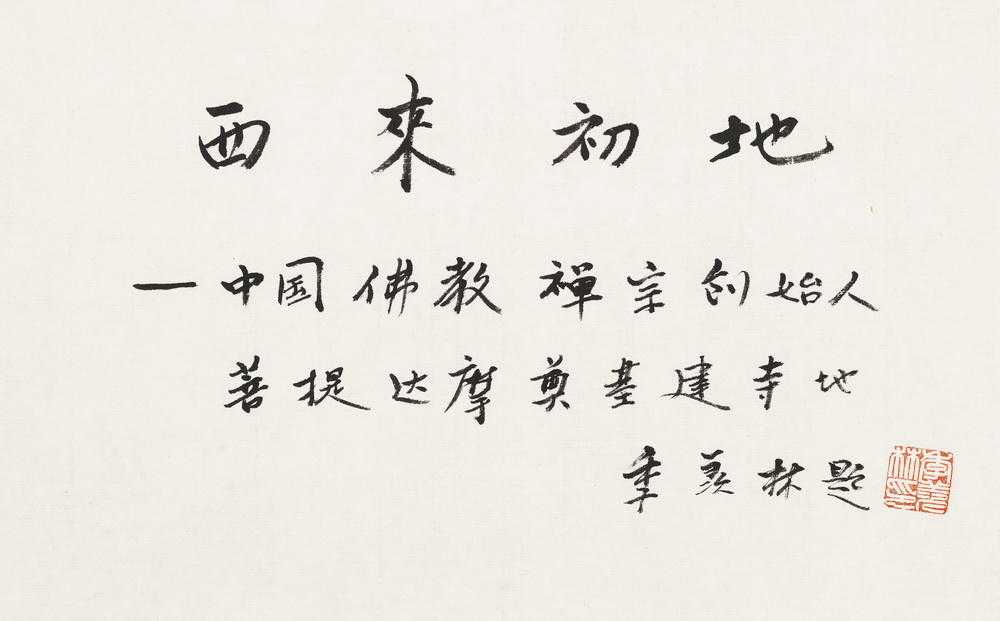 西來初地
—中国佛教禪宗创始人
菩提达摩奠基建寺地
季羡林题
季羡林印